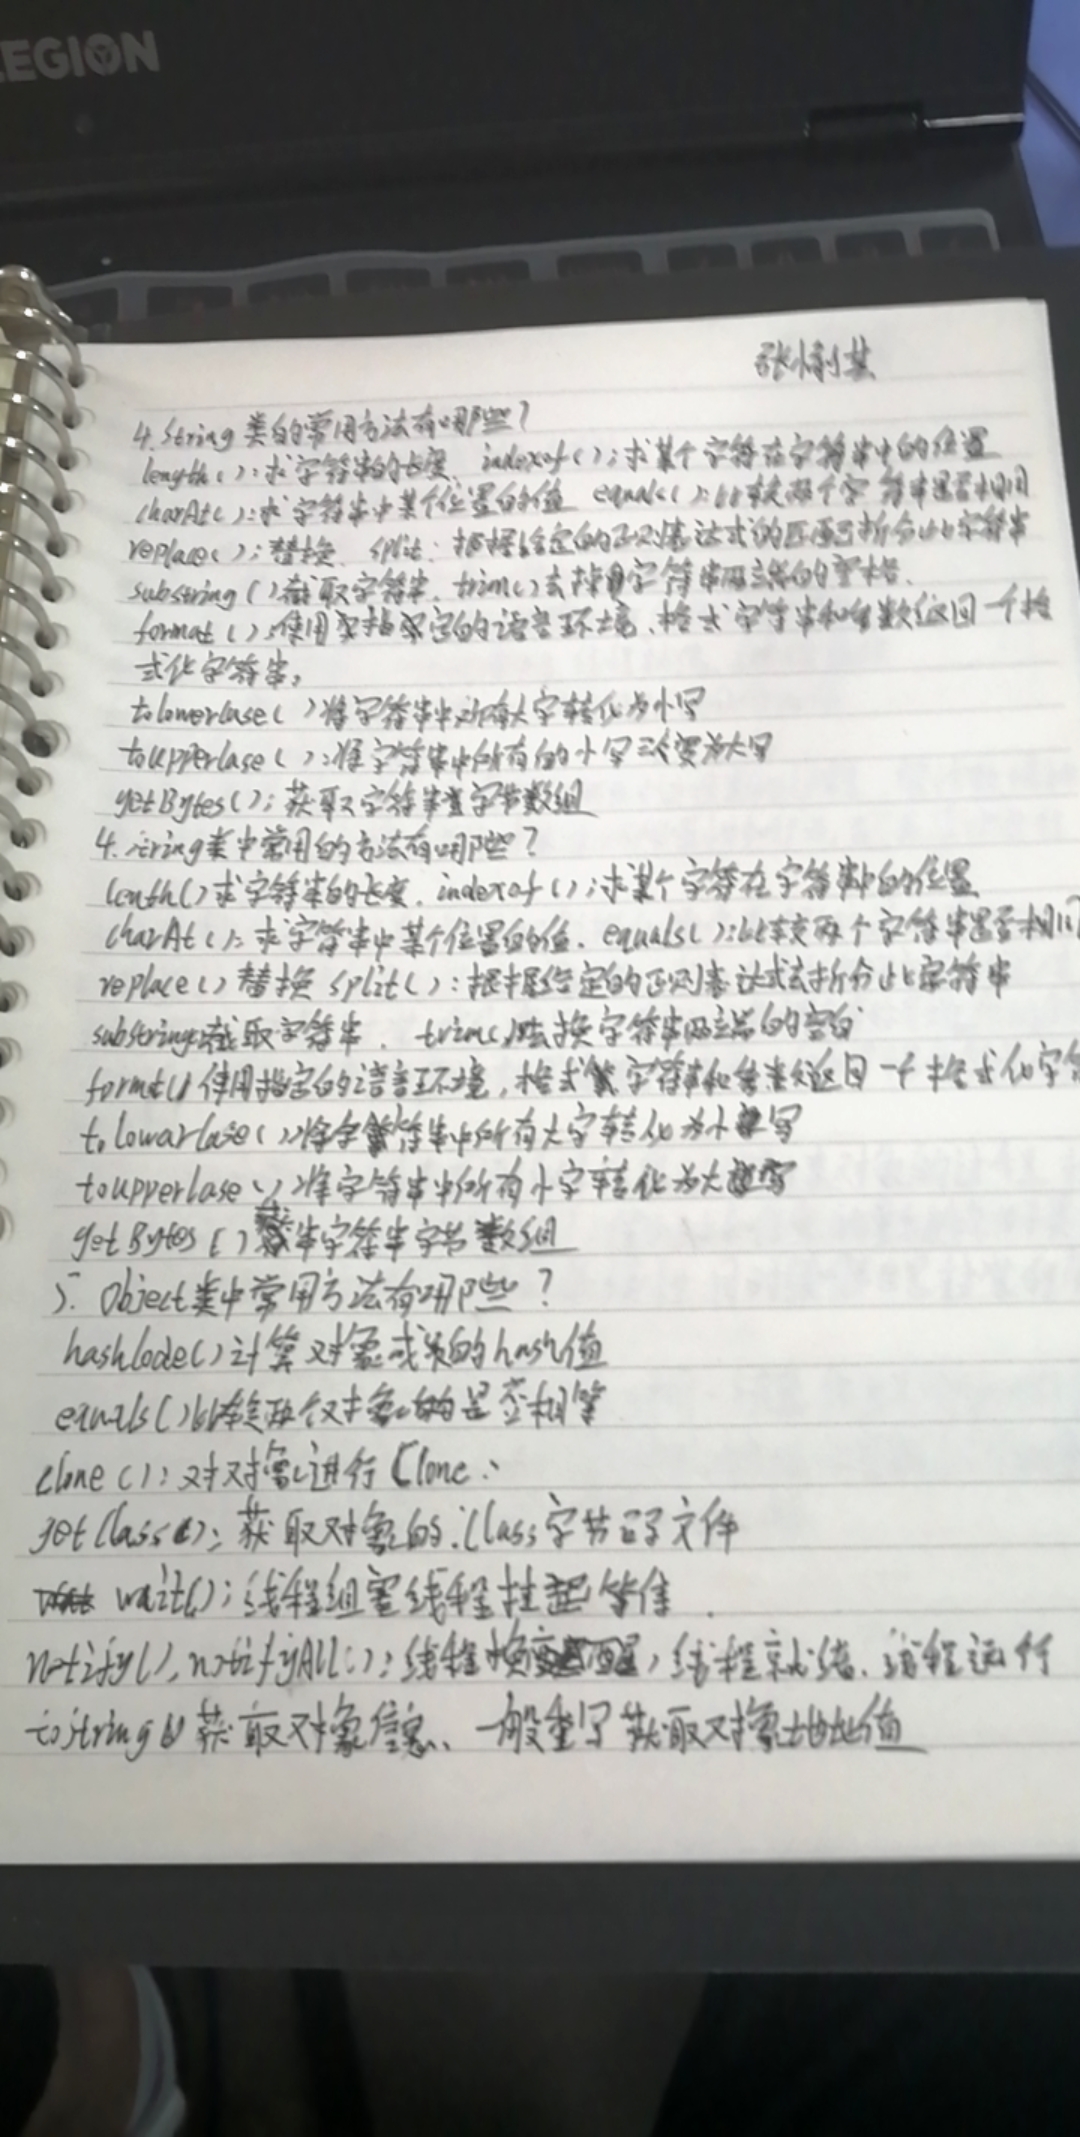 LEGION
张
4. String类的常用方法有哪些？
length()：求字符串的长度、indexof()；求某个字符在字符串中的位置
charAt()：求字符串中某个位置的值 equals()：比较两个字符串是否相同
replace()；替换、split：根据给定的正则表达式的匹配拆分此字符串
substring()截取字符串、trim()去掉字符串两端的空格.
format()：使用指定的语言环境、格式字符串和参数返回一个格
式化字符串；
tolowerCase()将字符串中所有大字转化为小写
toupperCase()：将字符串中所有的小字变为大写
getBytes()；获取字符串字节数组
4. String类中常用的方法有哪些？
lenth()求字符串的长度、indexof()；求某个字符在字符串中的位置
charAt()：求字符串中某个位置的值、equals()：比较两个字符串是否相同
replace()替换 split()：根据给定的正则表达式去拆分此字符串
substring截取字符串、trim()去换字符串两端的空白
format()使用指定的语言环境，格式字符串和参数返回一个格式化字符
tolowarCase()将字符串中所有大字转化为小写
toupperCase()将字符串中所有小字转化为大写
getBytes()获串字符串字节数组
5. Object类中常用方法有哪些？
hashCode()计算对象或类的hash值
equals()比较两个对象的是否相等
clone()：对对象进行Clone
getClass()：获取对象的.Class字节码文件
wait()；线程挂起等待
notify()，notifyAll()：线程唤醒，线程就绪、线程运行
toString()获取对象信息、一般重写获取对象地址值